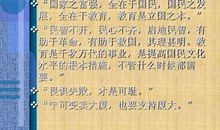 “国家之富强，全在于国民，国民之发
展，全在于教育，教育是立国之本。”
“民智不开，民心不齐，启迪民智，有
助于革命，有助于救国，其理甚明。教
育是千秋万代的事业，是提高国民文化
水平的根本措施，不管什么时候都需
要。”
“畏惧失败，才是可耻。”
“宁可变卖大厦，也要支持厦大。”